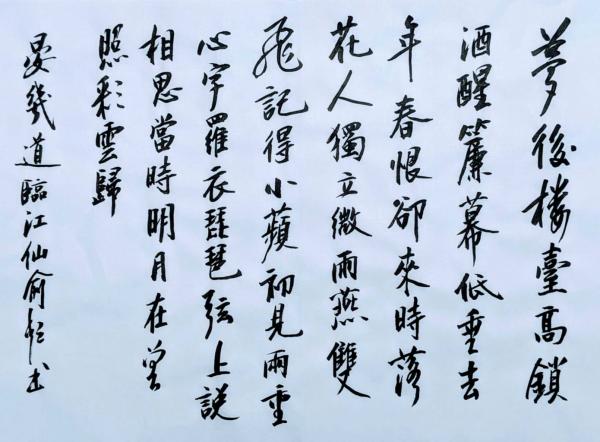 夢後楼臺高鎖
酒醒簾幕低垂去
年春恨卻來時落
花人獨立微雨燕雙
飛記得小蘋初見兩重
心字羅衣琵琶弦上説
相思當時明月在曽
照彩雲歸
晏幾道臨江仙俞書